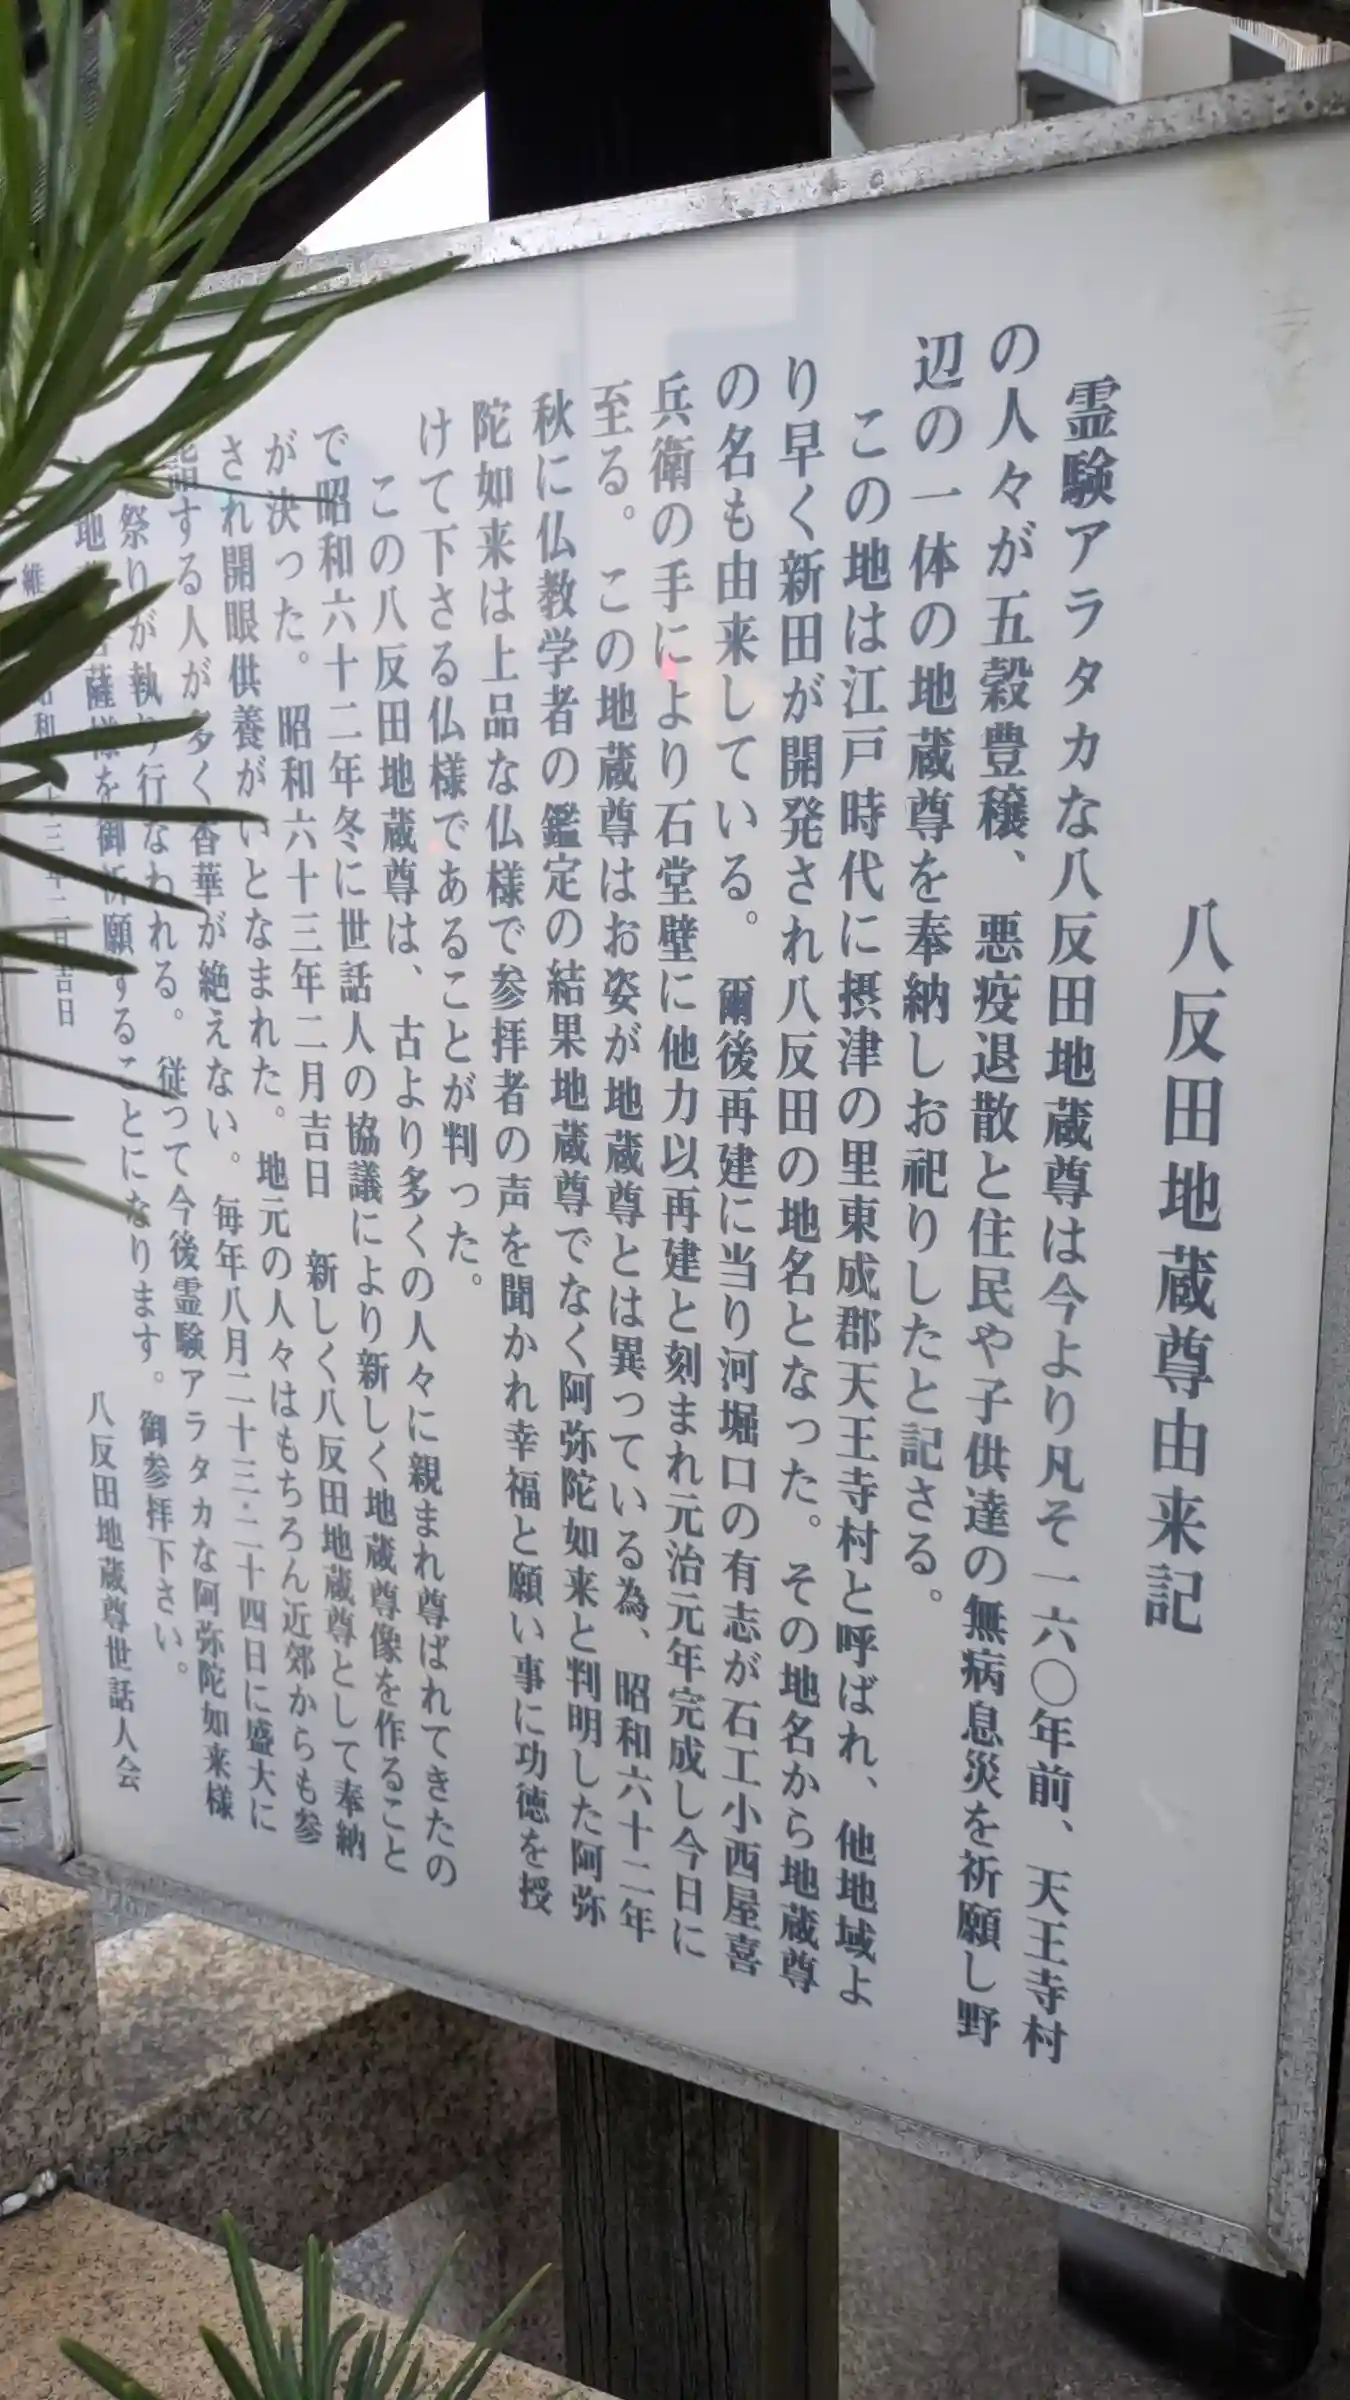 八反田地蔵尊由来記
霊験アラタカな八反田地蔵尊は今より凡そ一六〇年前、天王寺村
の人々が五穀豊穣、悪疫退散と住民や子供達の無病息災を祈願し野
辺の一体の地蔵尊を奉納しお祀りしたと記さる。
この地は江戸時代に摂津の里東成郡天王寺村と呼ばれ、他地域よ
り早く新田が開発され八反田の地名となった。その地名から地蔵尊
の名も由来している。爾後再建に当り河堀口の有志が石工小西屋喜
兵衛の手により石堂壁に他力以再建と刻まれ元治元年完成し今日に
至る。この地蔵尊はお姿が地蔵尊とは異っている為、昭和六十二年
秋に仏教学者の鑑定の結果地蔵尊でなく阿弥陀如来と判明した阿弥
陀如来は上品な仏様で参拝者の声を聞かれ幸福と願い事に功徳を授
けて下さる仏様であることが判った。
この八反田地蔵尊は、古より多くの人々に親まれ尊ばれてきたの
で昭和六十二年冬に世話人の協議により新しく地蔵尊像を作ること
が決った。昭和六十三年二月吉日 新しく八反田地蔵尊として奉納
され開眼供養がいとなまれた。地元の人々はもちろん近郊からも参
詣する人が多く香華が絶えない。毎年八月二十三・二十四日に盛大に
祭りが執り行なわれる。従って今後霊験アラタカな阿弥陀如来様
地 薩様を御祈願することになります。御参拝下さい。
維 昭和 十三年二月吉日
八反田地蔵尊世話人会